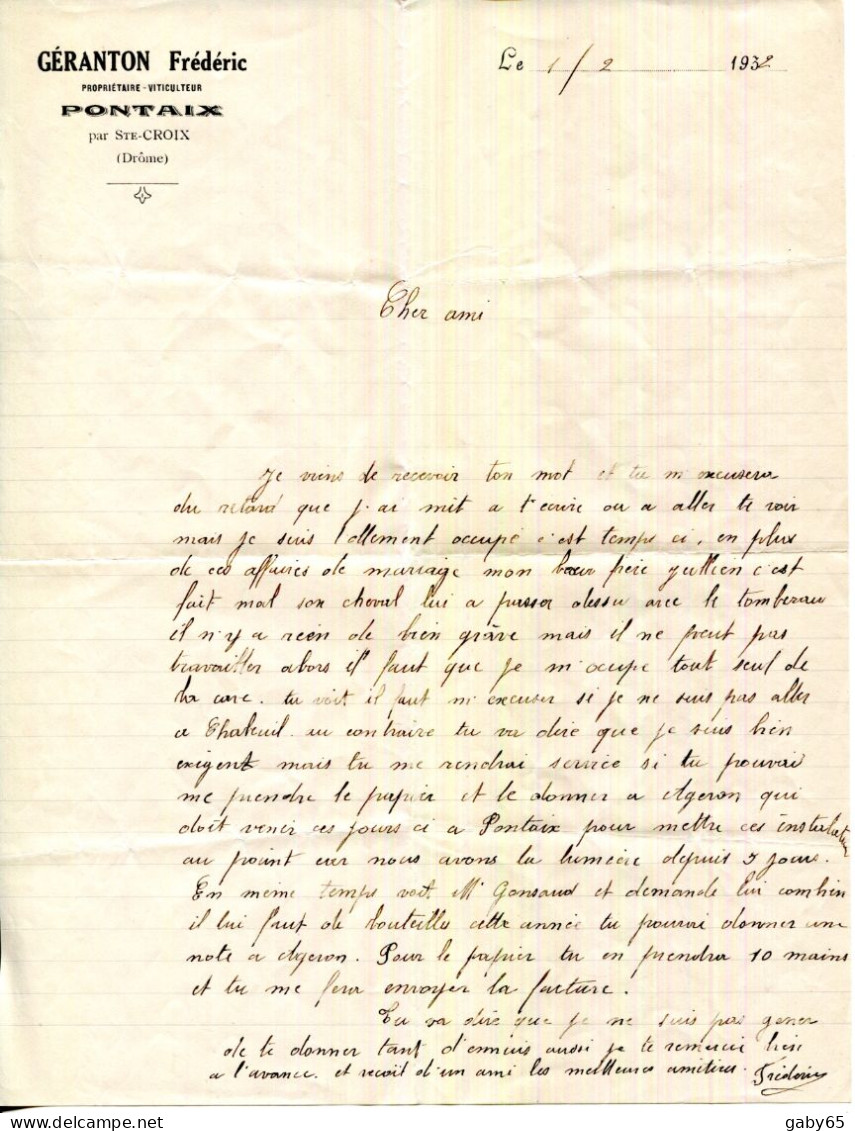 GÉRANTON Frédéric
PROPRIÉTAIRE-VITICULTEUR
PONTAIX
par STE-CROIX
(Drôme)
Le 1/2 1932
Cher ami
Je viens de recevoir ton mot et tu m'excusera
du retard que j'ai mit a t'ecrire ou a aller te voir
mais je suis tellement occupé c'est temps ci, en plus
de ces affaires de mariage mon beau frère c'est
fait mal son cheval lui a passer dessu avec le tombereau
il n'y a reien de bien grâve mais il ne peut pas
travailler alors il faut que je m'ocupe tout seul de
la cave. tu voit il faut m'excuser si je ne suis pas aller
a Chabeuil. au contraire tu va dire que je suis bien
exigent mais tu me rendrai service si tu pouvai
me prendre le papier et le donner a Ageron qui
doit venir ces jours ci a Pontaix pour mettre ces
au point car nous avons la lumiere depuis 5 jours.
En meme temps voit Mr et demande lui combien
il lui faut de bouteilles cette année tu pouvai donner une
note a Ageron. Pour le papier tu en prendra 10 mains
et tu me fera envoyer la facture.
Tu va dire que je ne suis pas gener
de te donner tant d'ennuis aussi je te remerci bien
a l'avance. et recoit d'un ami les meilleures amitiées. Frédéric
delcampe.net
gaby65